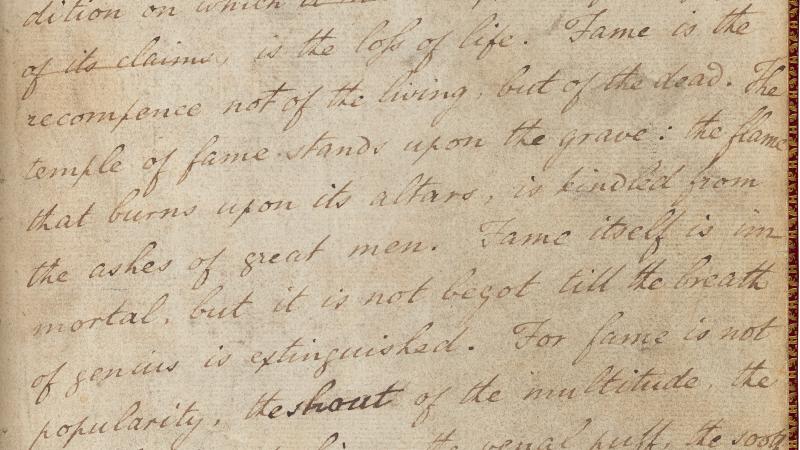 dition on which it
of its claims, is the loss of life. Fame is the
recompence not of the living, but of the dead. The
temple of fame stands upon the grave: the flame
that burns upon its altars, is kindled from
the ashes of great men. Fame itself is im
mortal, but it is not begot till the breath
of genius is extinguished. For fame is not
popularity, the shout of the multitude, the
the venal puff, the